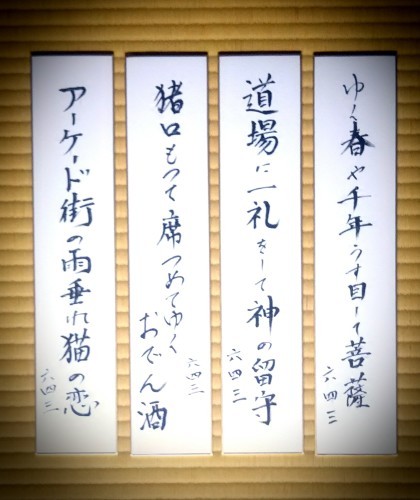 ゆく春や千年うす目して菩薩
六四三
道場に一礼をして神の留守
六四三
猪口もつて席つめてゆくおでん酒
六四三
アーケード街の雨垂れ猫の恋
六四三